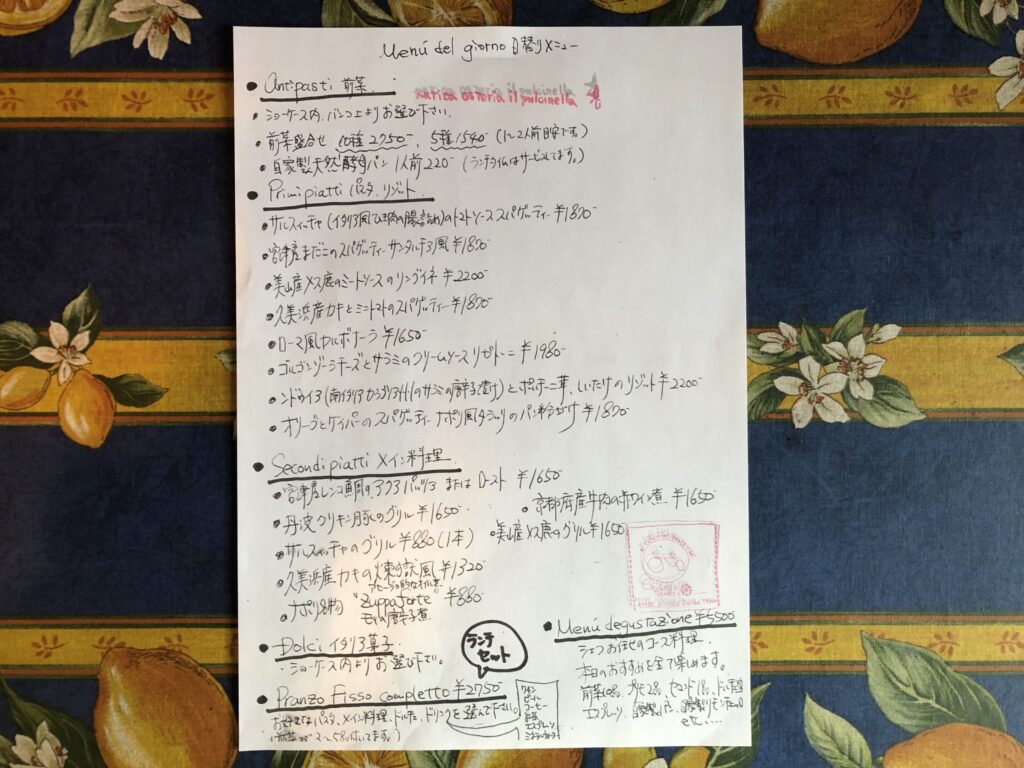 Menú del giorno 日替りメニュー
Antipasti 前菜
antica osteria il pulcinella
ショーケース内、バンコ上よりお選び下さい。
前菜盛合せ 10種2750-、5種1540- (1~2人前目安です。)
自家製天然酵母パン 1人前220- (ランチタイムはサービスしてます。)
Primi piatti パスタ、リゾット
サルスィッチャ(イタリア風ひき肉の腸詰め)のトマトソーススパゲッティー ¥1870-
宮津産まだこのスパゲッティー サンタルチア風 ¥1870-
美山産メス鹿のミートソースのリングイネ ¥2200-
久美浜産カキとミニトマトのスパゲッティー ¥1870-
ローマ風カルボナーラ ¥1650-
ゴルゴンゾーラチーズとサラミのクリームソース リガトーニ ¥1980-
ンドゥイア(南イタリアカラブリア州のサラミの唐辛子漬け)とポルチーニ茸、しいたけのリゾット ¥2200-
オリーブとケイパーのスパゲッティー ナポリ風カリカリのパン粉がけ ¥1870-
Secondi piatti メイン料理
宮津産レンコ鯛のアクアパッツァ または ロースト ¥1650-
京都府産牛肉の赤ワイン煮 ¥1650-
丹波クリキン豚のグリル ¥1650-
美山産メス鹿のグリル ¥1650
サルスィッチャのグリル ¥880 (1本)
久美浜産カキの煉獄風 ¥1320-
ナポリ名物 "Zuppa forte" ¥880-
モツの唐辛子煮
Dolci イタリア菓子
ショーケース内よりお選び下さい。
ランチ
セット
Pranzo Fisso completto ¥2750-
お好きなパスタ、メイン料理、ドルチェ、ドリンクを選んで下さい。
(前菜が 付いてます。)
ワイン
ビール
コーヒー
紅茶
エスプレッソ
ミネラルウォーター
Menú degustazione ¥5500
シェフお任せのコース料理
本日のおすすめを全て楽しめます。
エスプレッソ、
etc....